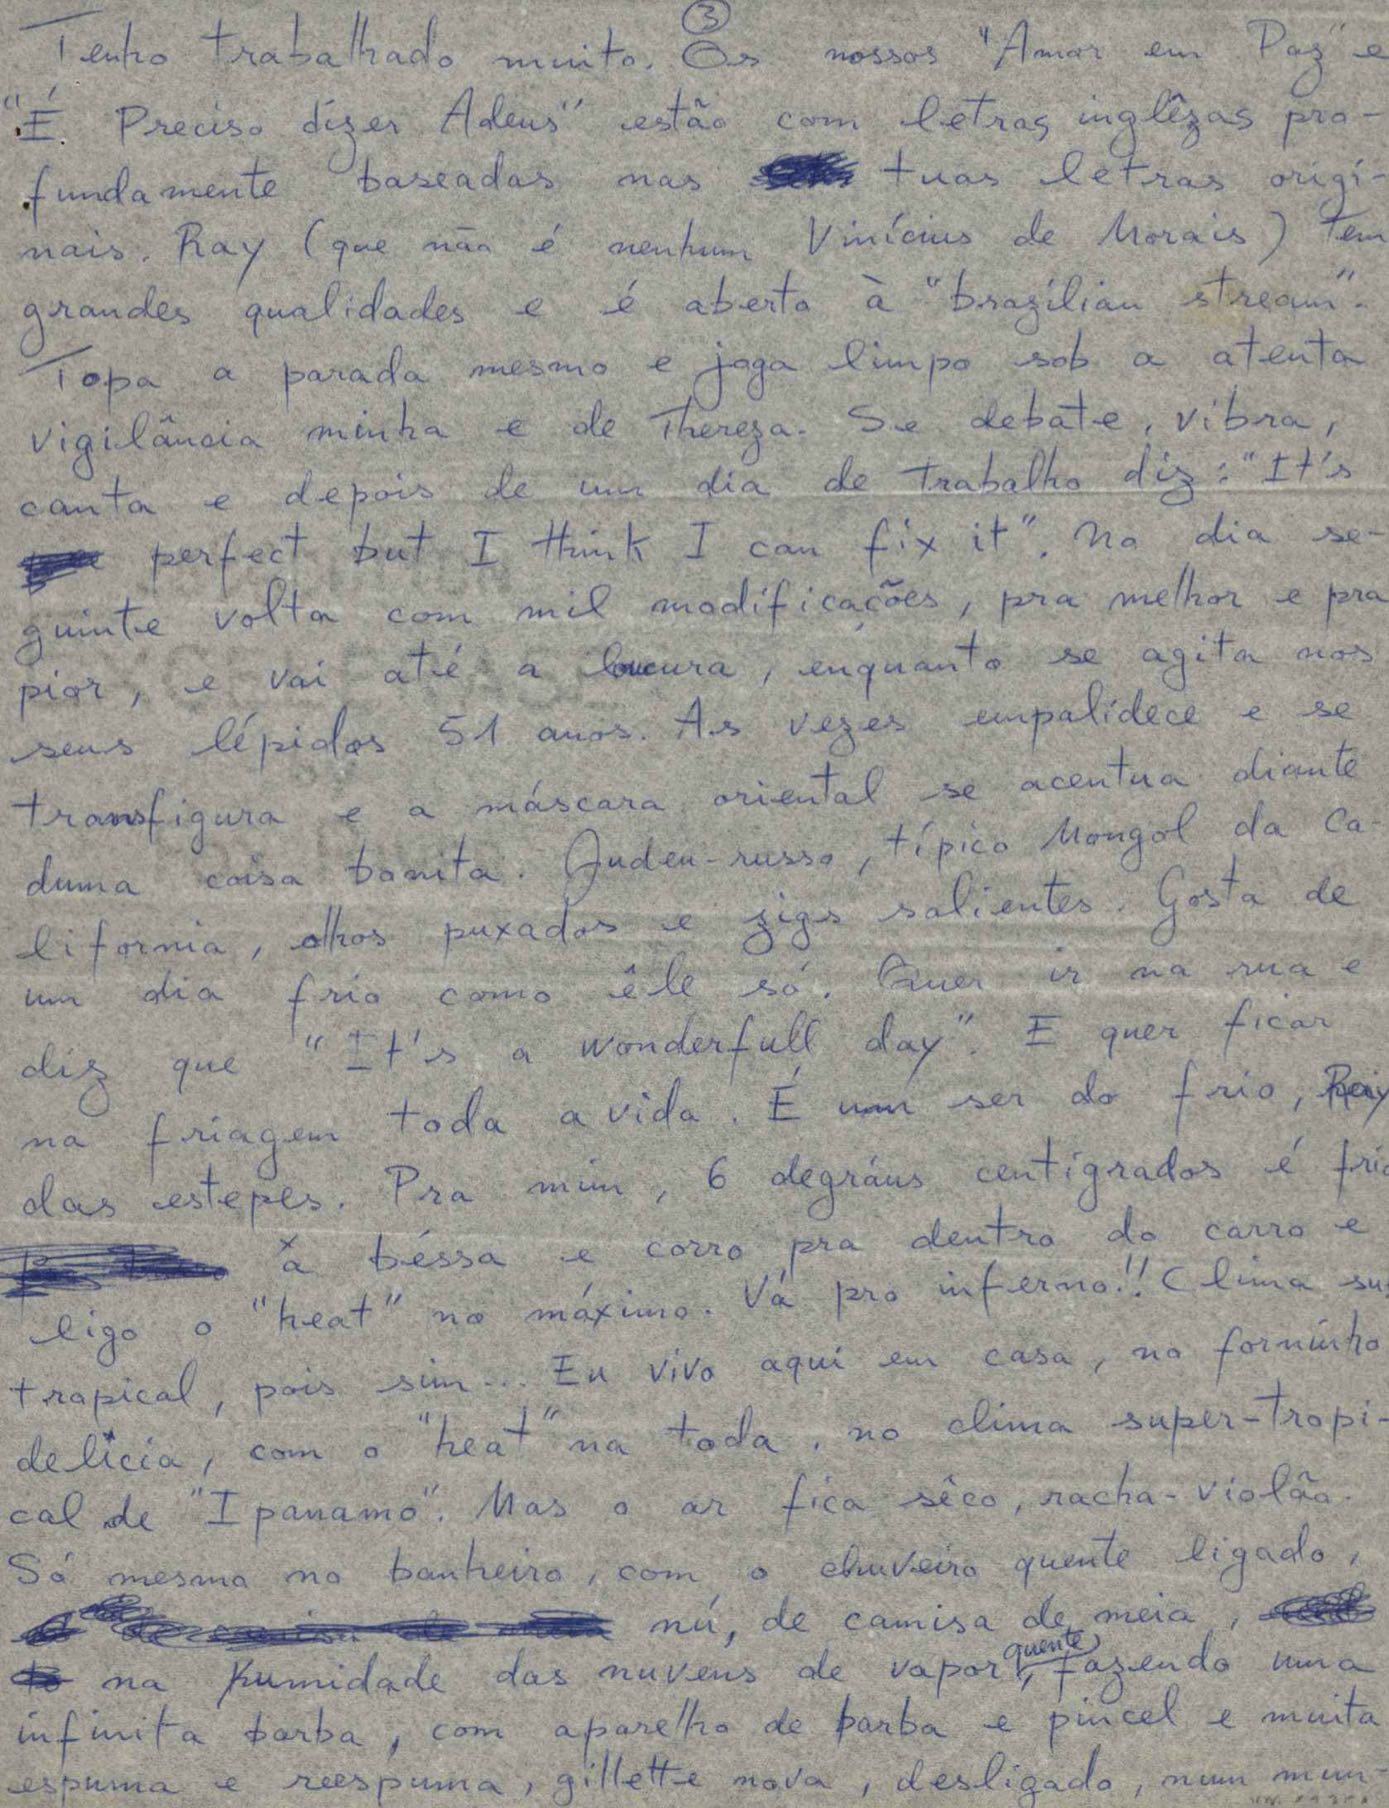 ③
Tenho trabalhado muito. Os nossos "Amor em Paz" e
"É Preciso dizer Adeus" estão com letras inglêzas pro-
fundamente baseadas nas tuas letras origi-
nais. Ray (que não é nenhum Vinícius de Morais) tem
grandes qualidades e é aberto à "brazilian stream".
Topa a parada mesmo e joga limpo sob a atenta
vigilância minha e de Thereza. Se debate, vibra,
canta e depois de um dia de trabalho diz: "It's
perfect but I think I can fix it". No dia se-
guinte volta com mil modificações, pra melhor e pra
pior, e vai até a loucura, enquanto se agita nos
seus lépidos 51 anos. As vezes empalidece e se
transfigura e a máscara oriental se acentua diante
duma coisa bonita. Judeu-russo, típico Mongol da Ca-
lifornia, olhos puxados e zigs salientes. Gosta de
um dia frio como êle só. Quer ir na rua e
diz que "It's a wonderfull day". E quer ficar
na friagem toda a vida. É um ser do frio, Ray
das estepes. Pra mim, 6 degráus centígrados é frio
à béssa e corro pra dentro do carro e
ligo o "heat" no máximo. Vá pro inferno!! Clima su
tropical, pois sim... Eu vivo aqui em casa, no forninho
delícia, com o "heat" na toda, no clima super-tropi-
cal de "Ipanamo". Mas o ar fica sêco, racha-violão.
Só mesmo no banheiro, com o chuveiro quente ligado,
nú, de camisa de meia,
na humidade das nuvens de vapor quente, fazendo uma
infinita barba, com aparelho de barba e pincel e muita
espuma e reespuma, gillette nova, desligado, num mun-